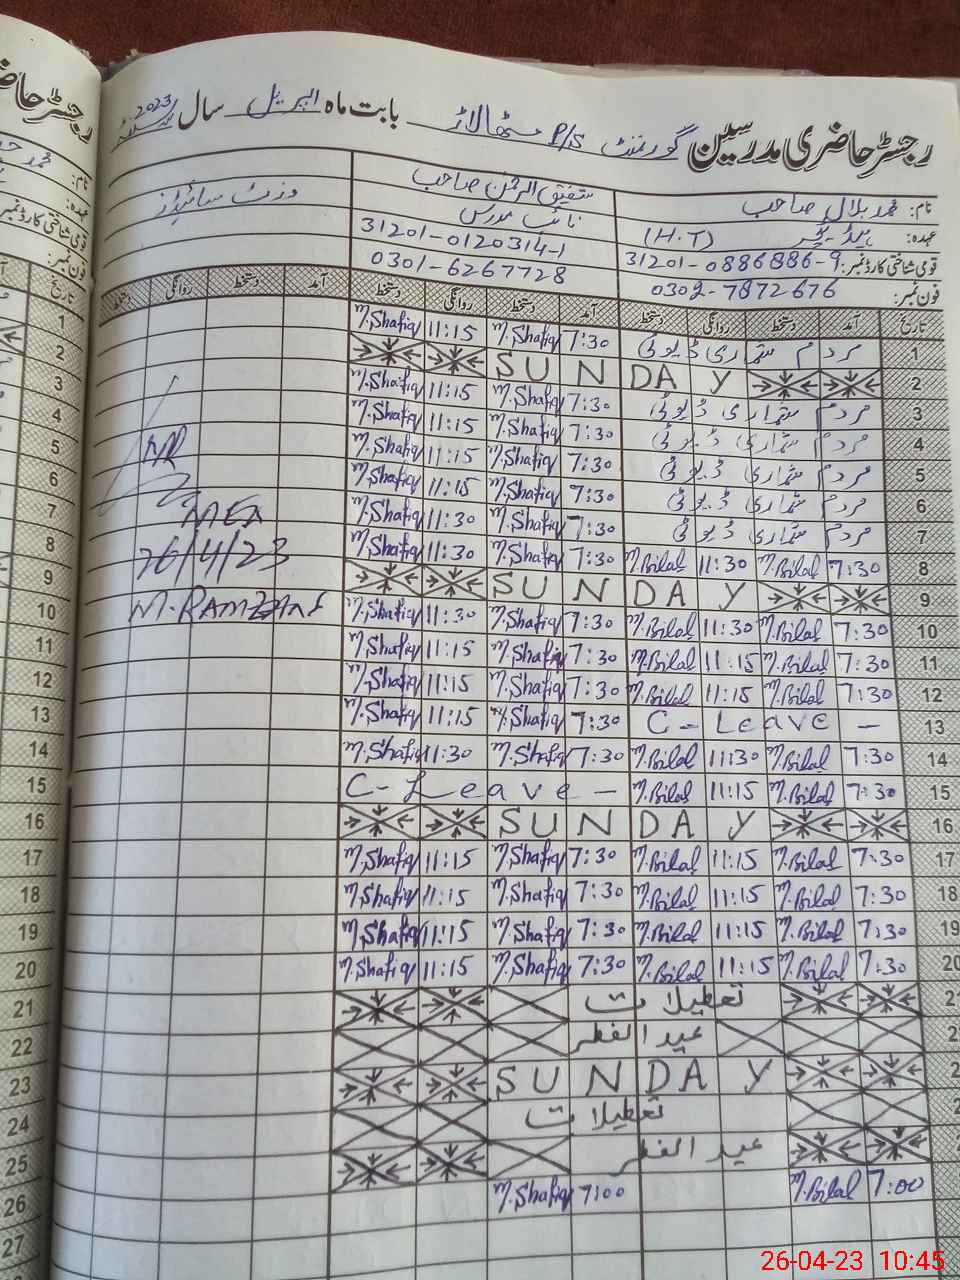 رجسٹر حاضری مدرسین گورنمنٹ P/S بابت ماہ اپریل سال 2023
نام: محمد بلال صاحب شفیق الرحمن صاحب
عہدہ: (H.T) نائب مدرس
قومی شناختی کارڈ نمبر: 31201-0886886-9 31201-0120314-1
فون نمبر: 0302-7872676 0301-6267728
تاریخ آمد دستخط روانگی دستخط آمد دستخط روانگی دستخط آمد روانگی دستخط
1 مردم شماری ڈیوٹی 7:30 M.Shafiq 11:15 M.Shafiq 1
2 SUNDAY 2
3 مردم شماری ڈیوٹی 7:30 M.Shafiq 11:15 M.Shafiq 3
4 مردم شماری ڈیوٹی 7:30 M.Shafiq 11:15 M.Shafiq 4
5 مردم شماری ڈیوٹی 7:30 M.Shafiq 11:15 M.Shafiq 5
6 مردم شماری ڈیوٹی 7:30 M.Shafiq 11:15 M.Shafiq 6
7 مردم شماری ڈیوٹی 7:30 M.Shafiq 11:30 M.Shafiq 7
8 7:30 M.Bilal 11:30 M.Bilal 7:30 M.Shafiq 11:30 M.Shafiq 8
9 SUNDAY 9
10 7:30 M.Bilal 11:30 M.Bilal 7:30 M.Shafiq 11:30 M.Shafiq 10
11 7:30 M.Bilal 11:15 M.Bilal 7:30 M.Shafiq 11:15 M.Shafiq 11
12 7:30 M.Bilal 11:15 M.Bilal 7:30 M.Shafiq 11:15 M.Shafiq 12
13 C-Leave- 7:30 M.Shafiq 11:15 M.Shafiq 13
14 7:30 M.Bilal 11:30 M.Bilal 7:30 M.Shafiq 11:30 M.Shafiq 14
15 7:30 M.Bilal 11:15 M.Bilal C-Leave- 15
16 SUNDAY 16
17 7:30 M.Bilal 11:15 M.Bilal 7:30 M.Shafiq 11:15 M.Shafiq 17
18 7:30 M.Bilal 11:15 M.Bilal 7:30 M.Shafiq 11:15 M.Shafiq 18
19 7:30 M.Bilal 11:15 M.Bilal 7:30 M.Shafiq 11:15 M.Shafiq 19
20 7:30 M.Bilal 11:15 M.Bilal 7:30 M.Shafiq 11:15 M.Shafiq 20
تعطیلات 21
عید الفطر 22
SUNDAY 23
تعطیلات 24
عید الفطر 25
7:00 M.Bilal 7:00 M.Shafiq 26
27
MEA
26/4/23
M.RAMZAN
26-04-23 10:45